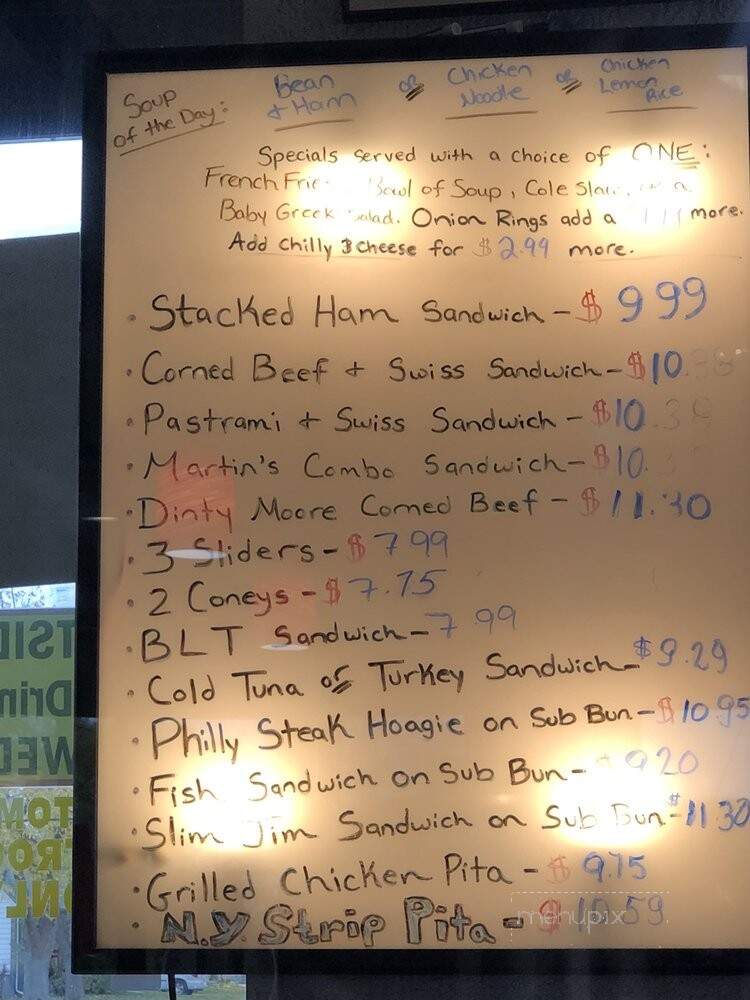 Soup of the Day: Bean & Ham or Chicken Noodle or Chicken Lemon Rice
Specials served with a choice of ONE:
French Bowl of Soup, Cole
Baby Greek Salad. Onion Rings add a more.
Add chilly 3 cheese for $2.99 more.
• Stacked Ham Sandwich - $ 9 99
• Corned Beef & Swiss Sandwich - $10.
• Pastrami & Swiss Sandwich - $10
• Martin's Combo Sandwich - $10.
• Dinty Moore Corned Beef - $
• 3 Sliders - $ 7 99
• 2 Coneys - $ 7.75
• BLT Sandwich - 7 99
• Cold Tuna or Turkey Sandwich - $9.29
• Philly Steak Hoagie on Sub Bun - $10 95
• Fish Sandwich on Sub Bun - 9 20
• Slim Jim Sandwich on Sub Bun - $11.30
• Grilled Chicken Pita - $ 9.75
• N.Y. Strip Pita - $ 10.59
menupix